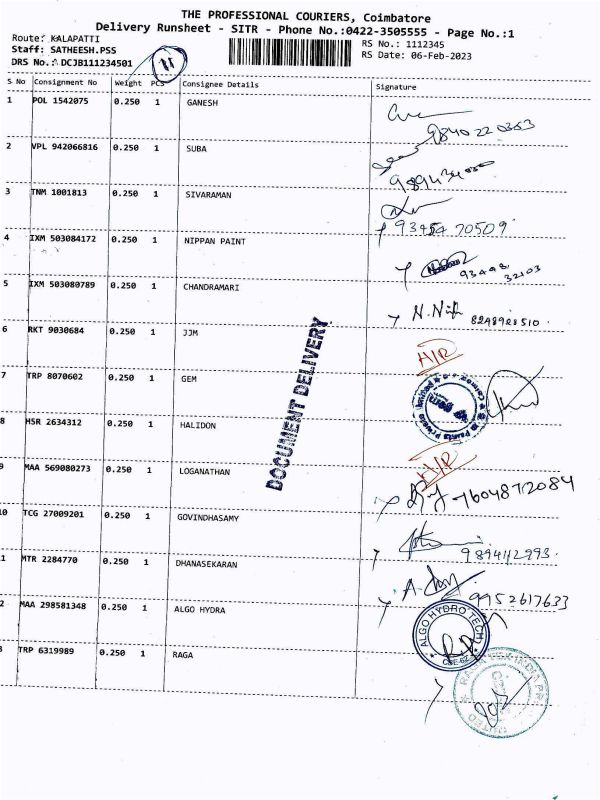 THE PROFESSIONAL COURIERS, Coimbatore
Delivery Runsheet - SITR - Phone No.:0422-3505555 - Page No.:1
Route: KALAPATTI
Staff: SATHEESH.PSS
DRS No.: DCJB111234501
11
RS No.: 1112345
RS Date: 06-Feb-2023
S No Consignment No Weight PCS Consignee Details Signature
1 POL 1542075 0.250 1 GANESH
9840220353
2 VPL 942066816 0.250 1 SUBA
3 TNM 1001813 0.250 1 SIVARAMAN
4 IXM 503084172 0.250 1 NIPPAN PAINT
93448
32103
5 IXM 503080789 0.250 1 CHANDRAMARI
8248928510
6 RKT 9030684 0.250 1 JJM
DOCUMENT DELIVERY
7 TRP 8070602 0.250 1 GEM
8 HSR 2634312 0.250 1 HALIDON
9 MAA 569080273 0.250 1 LOGANATHAN
7604872084
10 TCG 27009201 0.250 1 GOVINDHASAMY
9894112993
1 MTR 2284770 0.250 1 DHANASEKARAN
9952617633
2 MAA 298581348 0.250 1 ALGO HYDRA
ALGO HYDRO TECH
3 TRP 6319989 0.250 1 RAGA